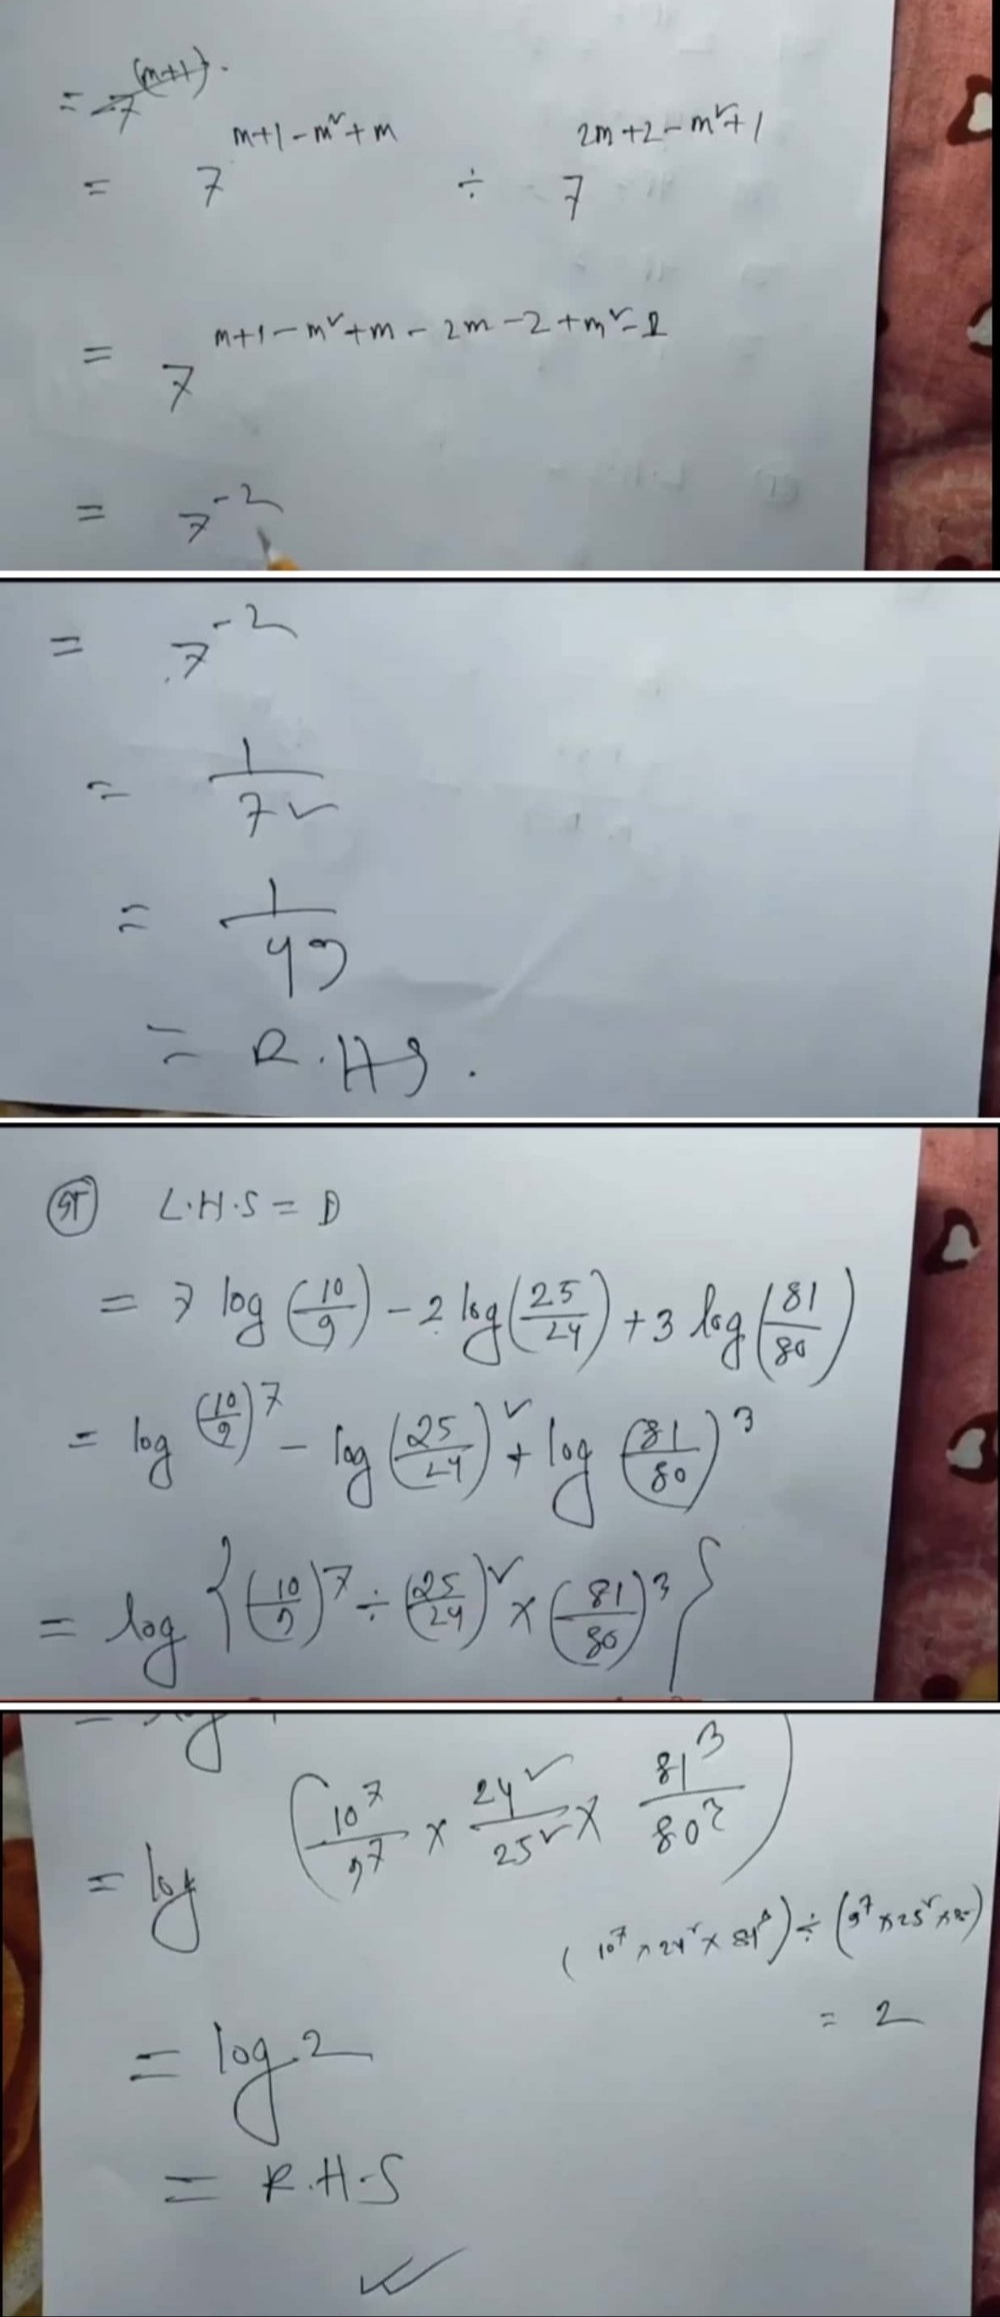 = 7^(m+1).
= 7^(m+1-m²+m) ÷ 7^(2m+2-m²+1)
= 7^(m+1-m²+m-2m-2+m²-1)
= 7^-2
= 7^-2
= 1/7²
= 1/49
= R.H.S.
গ L.H.S = D
= 7 log (10/9) - 2 log (25/24) + 3 log (81/80)
= log (10/9)^7 - log (25/24)² + log (81/80)^3
= log { (10/9)^7 ÷ (25/24)² × (81/80)^3 }
= log (10^7/9^7 × 24²/25² × 81^3/80^3)
(10^7 × 24² × 81^3) ÷ (9^7 × 25² ×
= 2
= log 2
= R.H.S